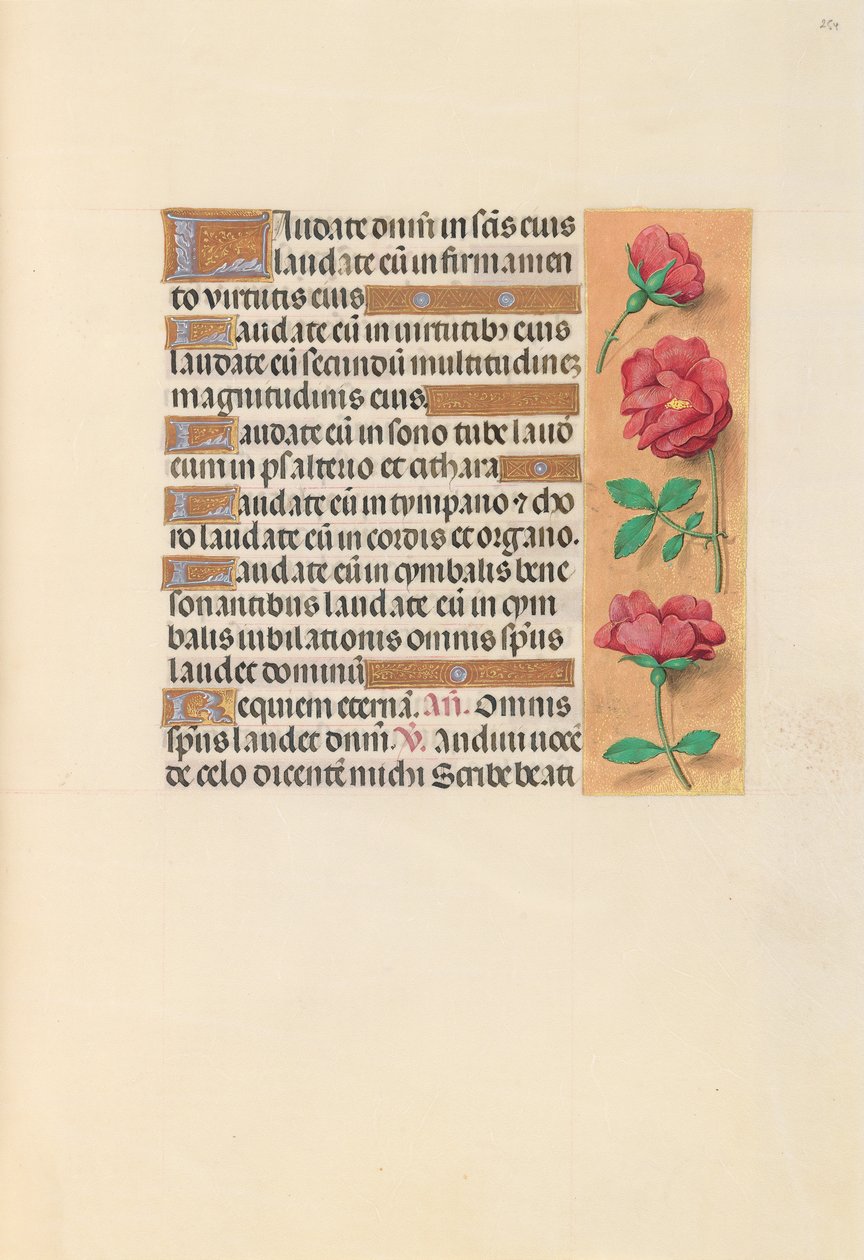 254
Laudate dnm̄ in sc̄is eius
laudate eū in firmamen
to virtutis eius
Laudate eū in virtutibꝫ eius
laudate eū secundū multitudineꝫ
magnitudinis eius.
Laudate eū in sono tube laud̄
eum in psalterio et cithara
Laudate eū in tympano ⁊ cho
ro laudate eū in cordis et organo.
Laudate eū in cymbalis bene
sonantibus laudate eū in cym
balis iubilationis omnis sp̄us
laudet dominū
Requiem eternā. Añ. Omnis
sp̄us laudet dnm̄. ℣. Audiui uocē
de celo dicentē michi Scribe beati